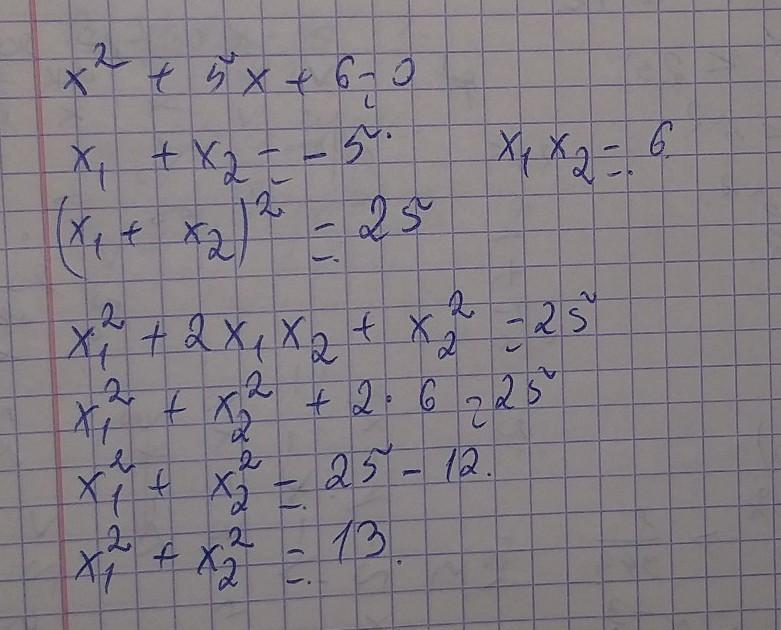 x² + 5x + 6 = 0
x₁ + x₂ = -5. x₁ x₂ = 6.
(x₁ + x₂)² = 25
x₁² + 2x₁x₂ + x₂² = 25
x₁² + x₂² + 2·6 = 25
x₁² + x₂² = 25 - 12.
x₁² + x₂² = 13.